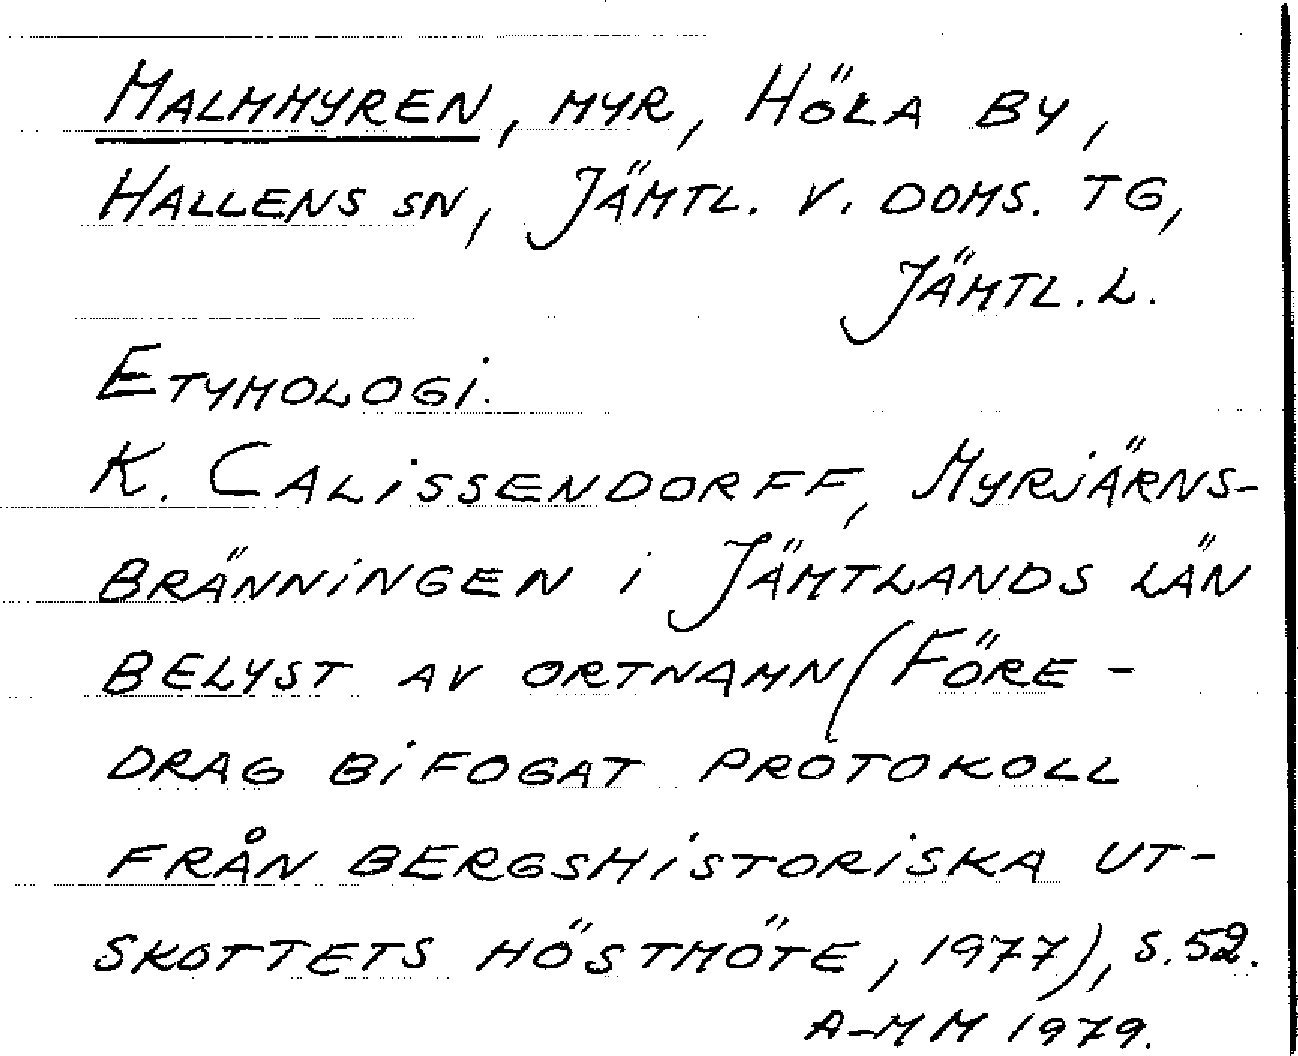 MALMMYREN, MYR, HÖLA BY,
HALLENS SN, JÄMTL. V. DOMS. TG,
JÄMTL. L.
ETYMOLOGI.
K. CALISSENDORFF, MYRJÄRNS-
BRÄNNINGEN I JÄMTLANDS LÄN
BELYST AV ORTNAMN (FÖRE-
DRAG BIFOGAT PROTOKOLL
FRÅN BERGSHISTORISKA UT-
SKOTTETS HÖSTMÖTE, 1977), S. 52.
A-MM 1979.